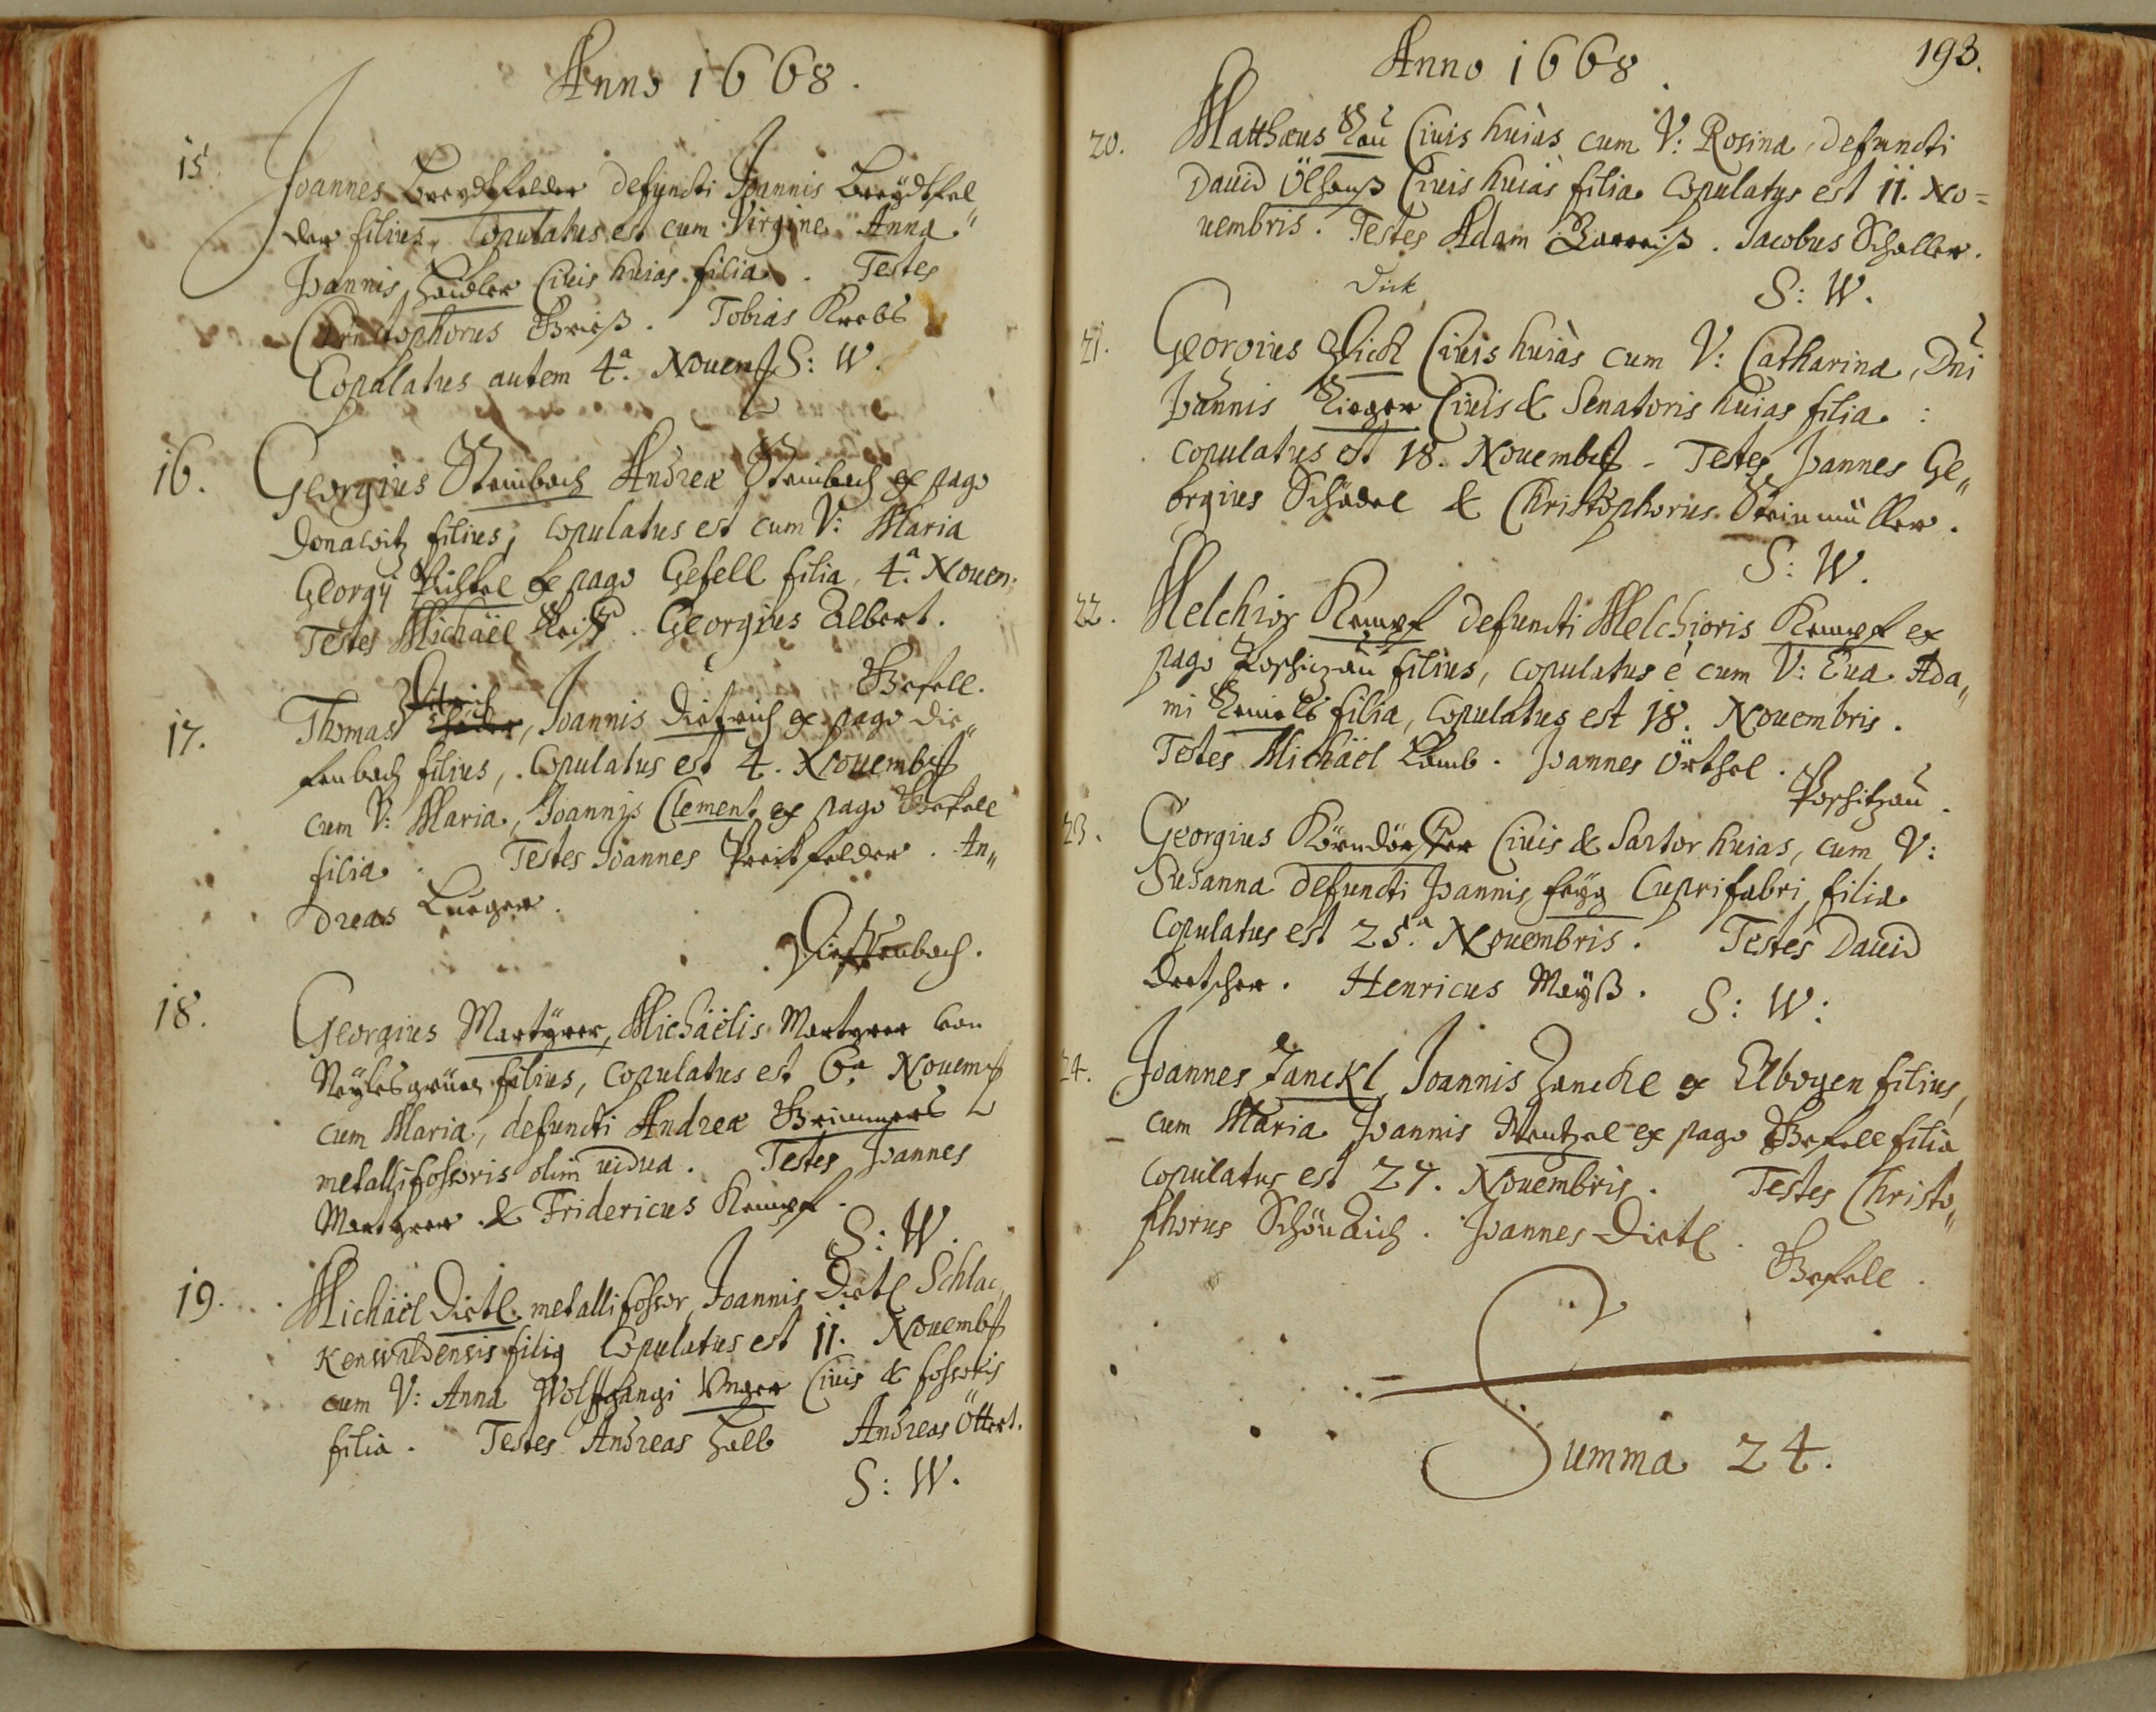 Anno 1668.
15. Joannes Breydtfelder defuncti Joannis Breydtfel„
der filius, Copulatus est cum Virgine Anna
Joannis Haidler Ciuis huias filia. Testes
Christophorus Grieß. Tobias Krebs
Copulatus autem 4.a Nouemb S: W.
16. Georgius Steinbach Andreæ Steinbach ex pago
Donawitz filius, copulatus est cum V: Maria
Georgij Pichtel ex pago Gefell filia, 4.a Nouem:
Testes Michäel Georgius Albert.
Gefell.
Dietrich
17. Thomas, Joannis Dietrich ex pago Die„
fenbach filius, Copulatus est 4. Nouemb
cum V: Maria, Joannis Clement ex pago Gefell
filia. Testes Joannes Preitfelder. An„
dreas Lueger.
Dieffenbach.
18. Georgius Martyrer, Michäelis Martyrer von
Neylesgrüen filius, copulatus est 6.a Nouemb
cum Maria, defuncti Andreæ Brimmers
metallifossoris olim uidua. Testes Joannes
Martyrer & Fridericus Kempf.
S: W.
19. Michäel Dietl metallifossor, Joannis Dietl Schlac„
kenwaldensis filius Copulatus est 11. Nouemb
cum V: Anna Wolffgangi Vnger Ciuis & fossoris
filia. Testes Andreas Halb Andreas Öttert.
S: W.
Anno 1668. 193.
20. Matthæus Rau Ciuis huias cum V: Rosina, defuncti
Dauid Ölhanß Ciuis huias filia Copulatus est 11. No=
uembris. Testes Adam. Jacobus Schaller.
S: W.
Dick
21. Georgius Dick Ciuis huias cum V: Catharina, Dni
Joannis Rieger Ciuis & Senatoris huias filia:
copulatus est 18. Nouemb. Testes Joannes Ge„
orgius Schädel & Christophorus Steinmüller.
S: W.
22. Melchior Kempf defuncti Melchioris Kempf ex
pago Poschizau filius, copulatus è cum V: Eua Ada„
mi filia, Copulatus est 18. Nouembris.
Testes Michäel Lamb. Joannes Örthel.
Poschitzau.
23. Georgius Körndörffer Ciuis & Sartor huias, cum V:
Susanna defuncti Joannis feyg Cuprifabri filia
Copulatus est 25.a Nouembris. Testes Dauid
Dretscher. Henricus Mayß. S: W:
24. Joannes Zanckl, Joannis Zanckl ex Elbogen filius,
cum Maria Joannis Wentzel ex pago Gefell filia
Copulatus est 27. Nouembris. Testes Christo„
phorus Schön. Joannes Dietl.
Gefell.
Summa 24.